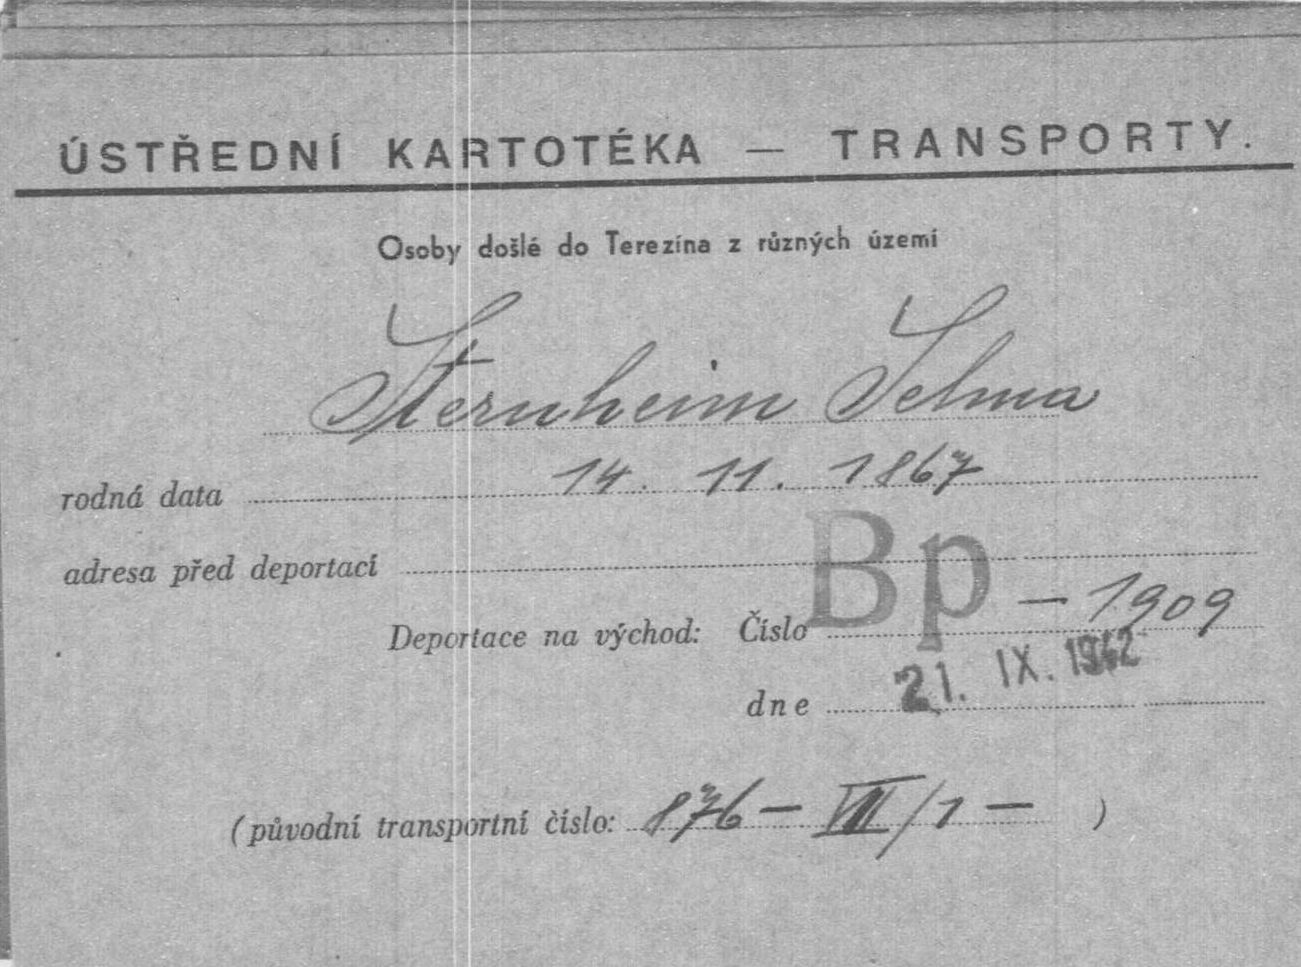 ÚSTŘEDNÍ KARTOTÉKA — TRANSPORTY.
Osoby došlé do Terezína z různých území
Sternheim Selma
rodná data 14. 11. 1867
adresa před deportací
Deportace na východ: Číslo Bp — 1909
dne 21. IX. 1942
(původní transportní číslo: 876 — VIII/1 — )